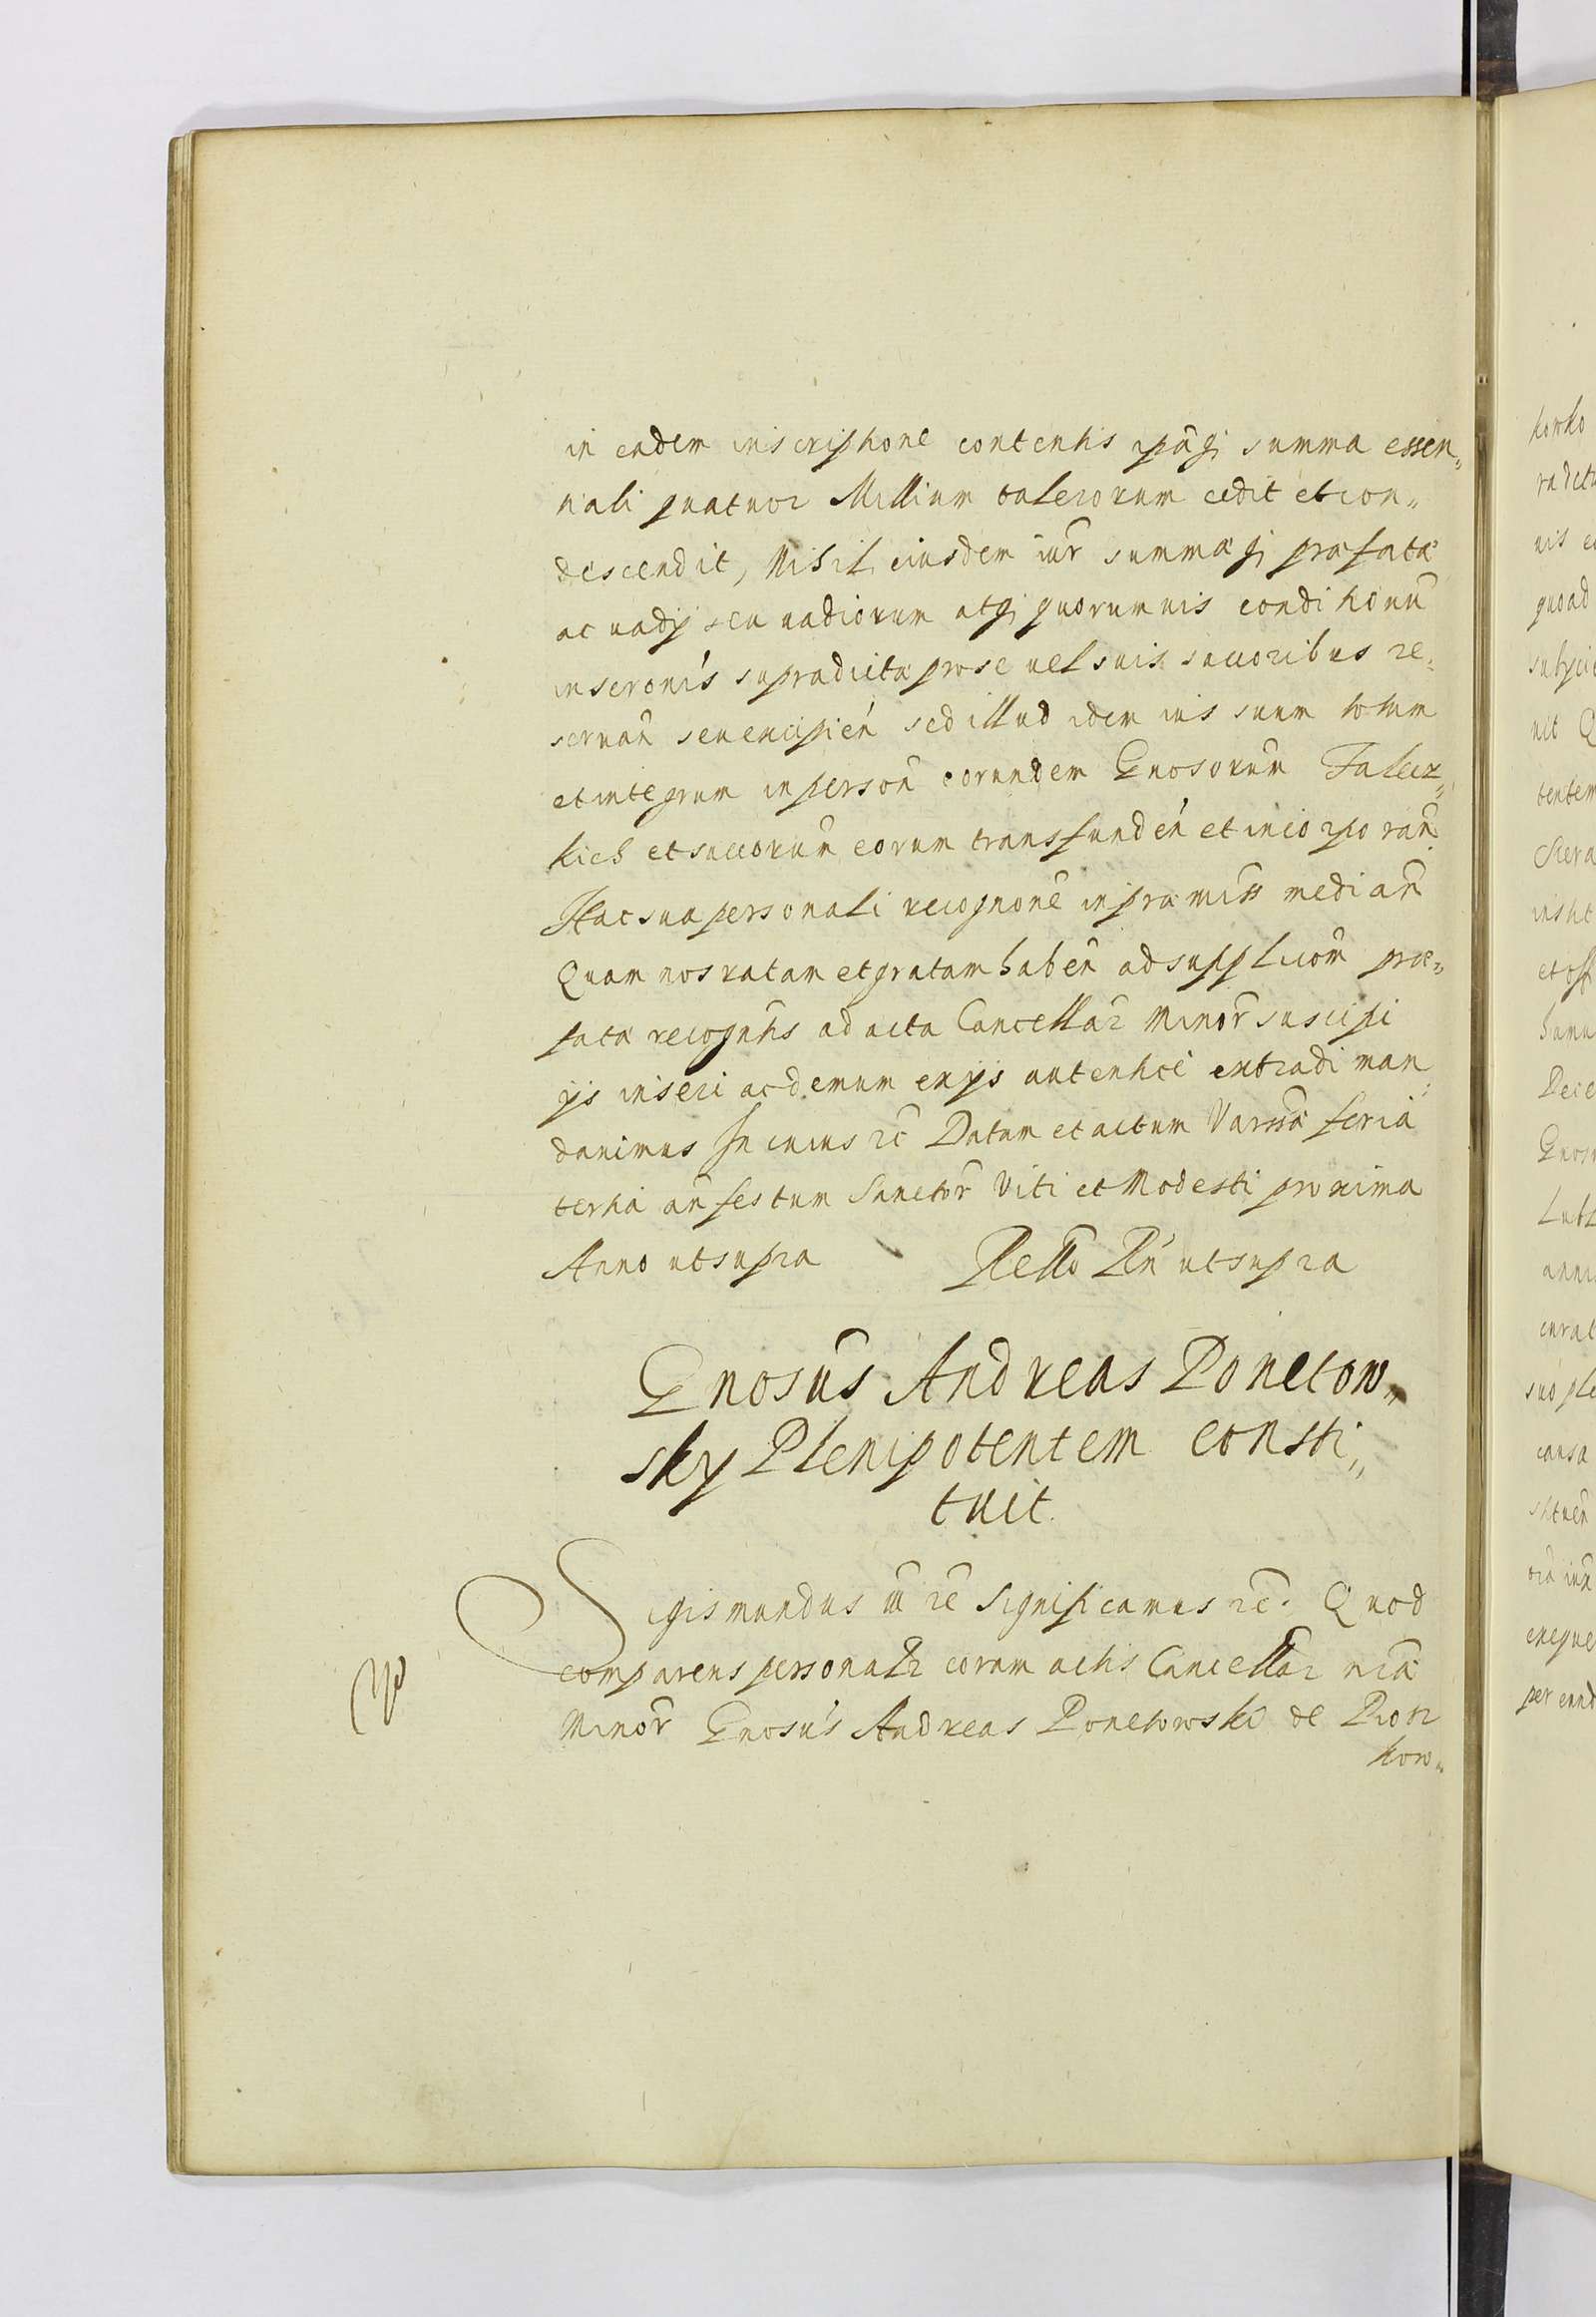 in eadem inscriptione contentis ipāq; summa essen„
tiali quatuor Millium talerorum cedit et con„
descendit, Nihil eiusdem iur̄ summaq; præfatæ
ac vadij seu vadiorum atq; quorumuis conditionū
inscronis supradictæ pro se uel suis succoribus re„
seruan̄ seu encipien̄ sed illud idem ius suum totum
et integrum in person̄ eorundem Gnosorum̄ Falecz„
kich et succorum̄ eorum transfunden̄ et incorporan̄.
Hac sua personali recognone in præmiss median̄
Quam nos ratam et gratam haben̄ ad supplicom̄ præ„
fatæ recogntis ad acta Cancellar Minor̄ suscipi
ijs inseri ac demum ex ijs autentice extradi man„
dauimus In cuius rc̄ Datum et actum Varssæ feria
tertia an̄ festum Sanctor̄ Viti et Modesti proxima
Anno ut supra Rello Rn̄ ut supra
Gnosus Andreas Ponetow„
sky Plenipotentem consti„
tuit.
Sigismundus iii rc̄ Significamus rc̄. Quod
comparens personalr coram actis Cancellar nrā
Minor̄ Gnosus Andreas Ponetowski de Piotr
kow„
korko
quoad
tentem
Dece
anni
causa
per eund